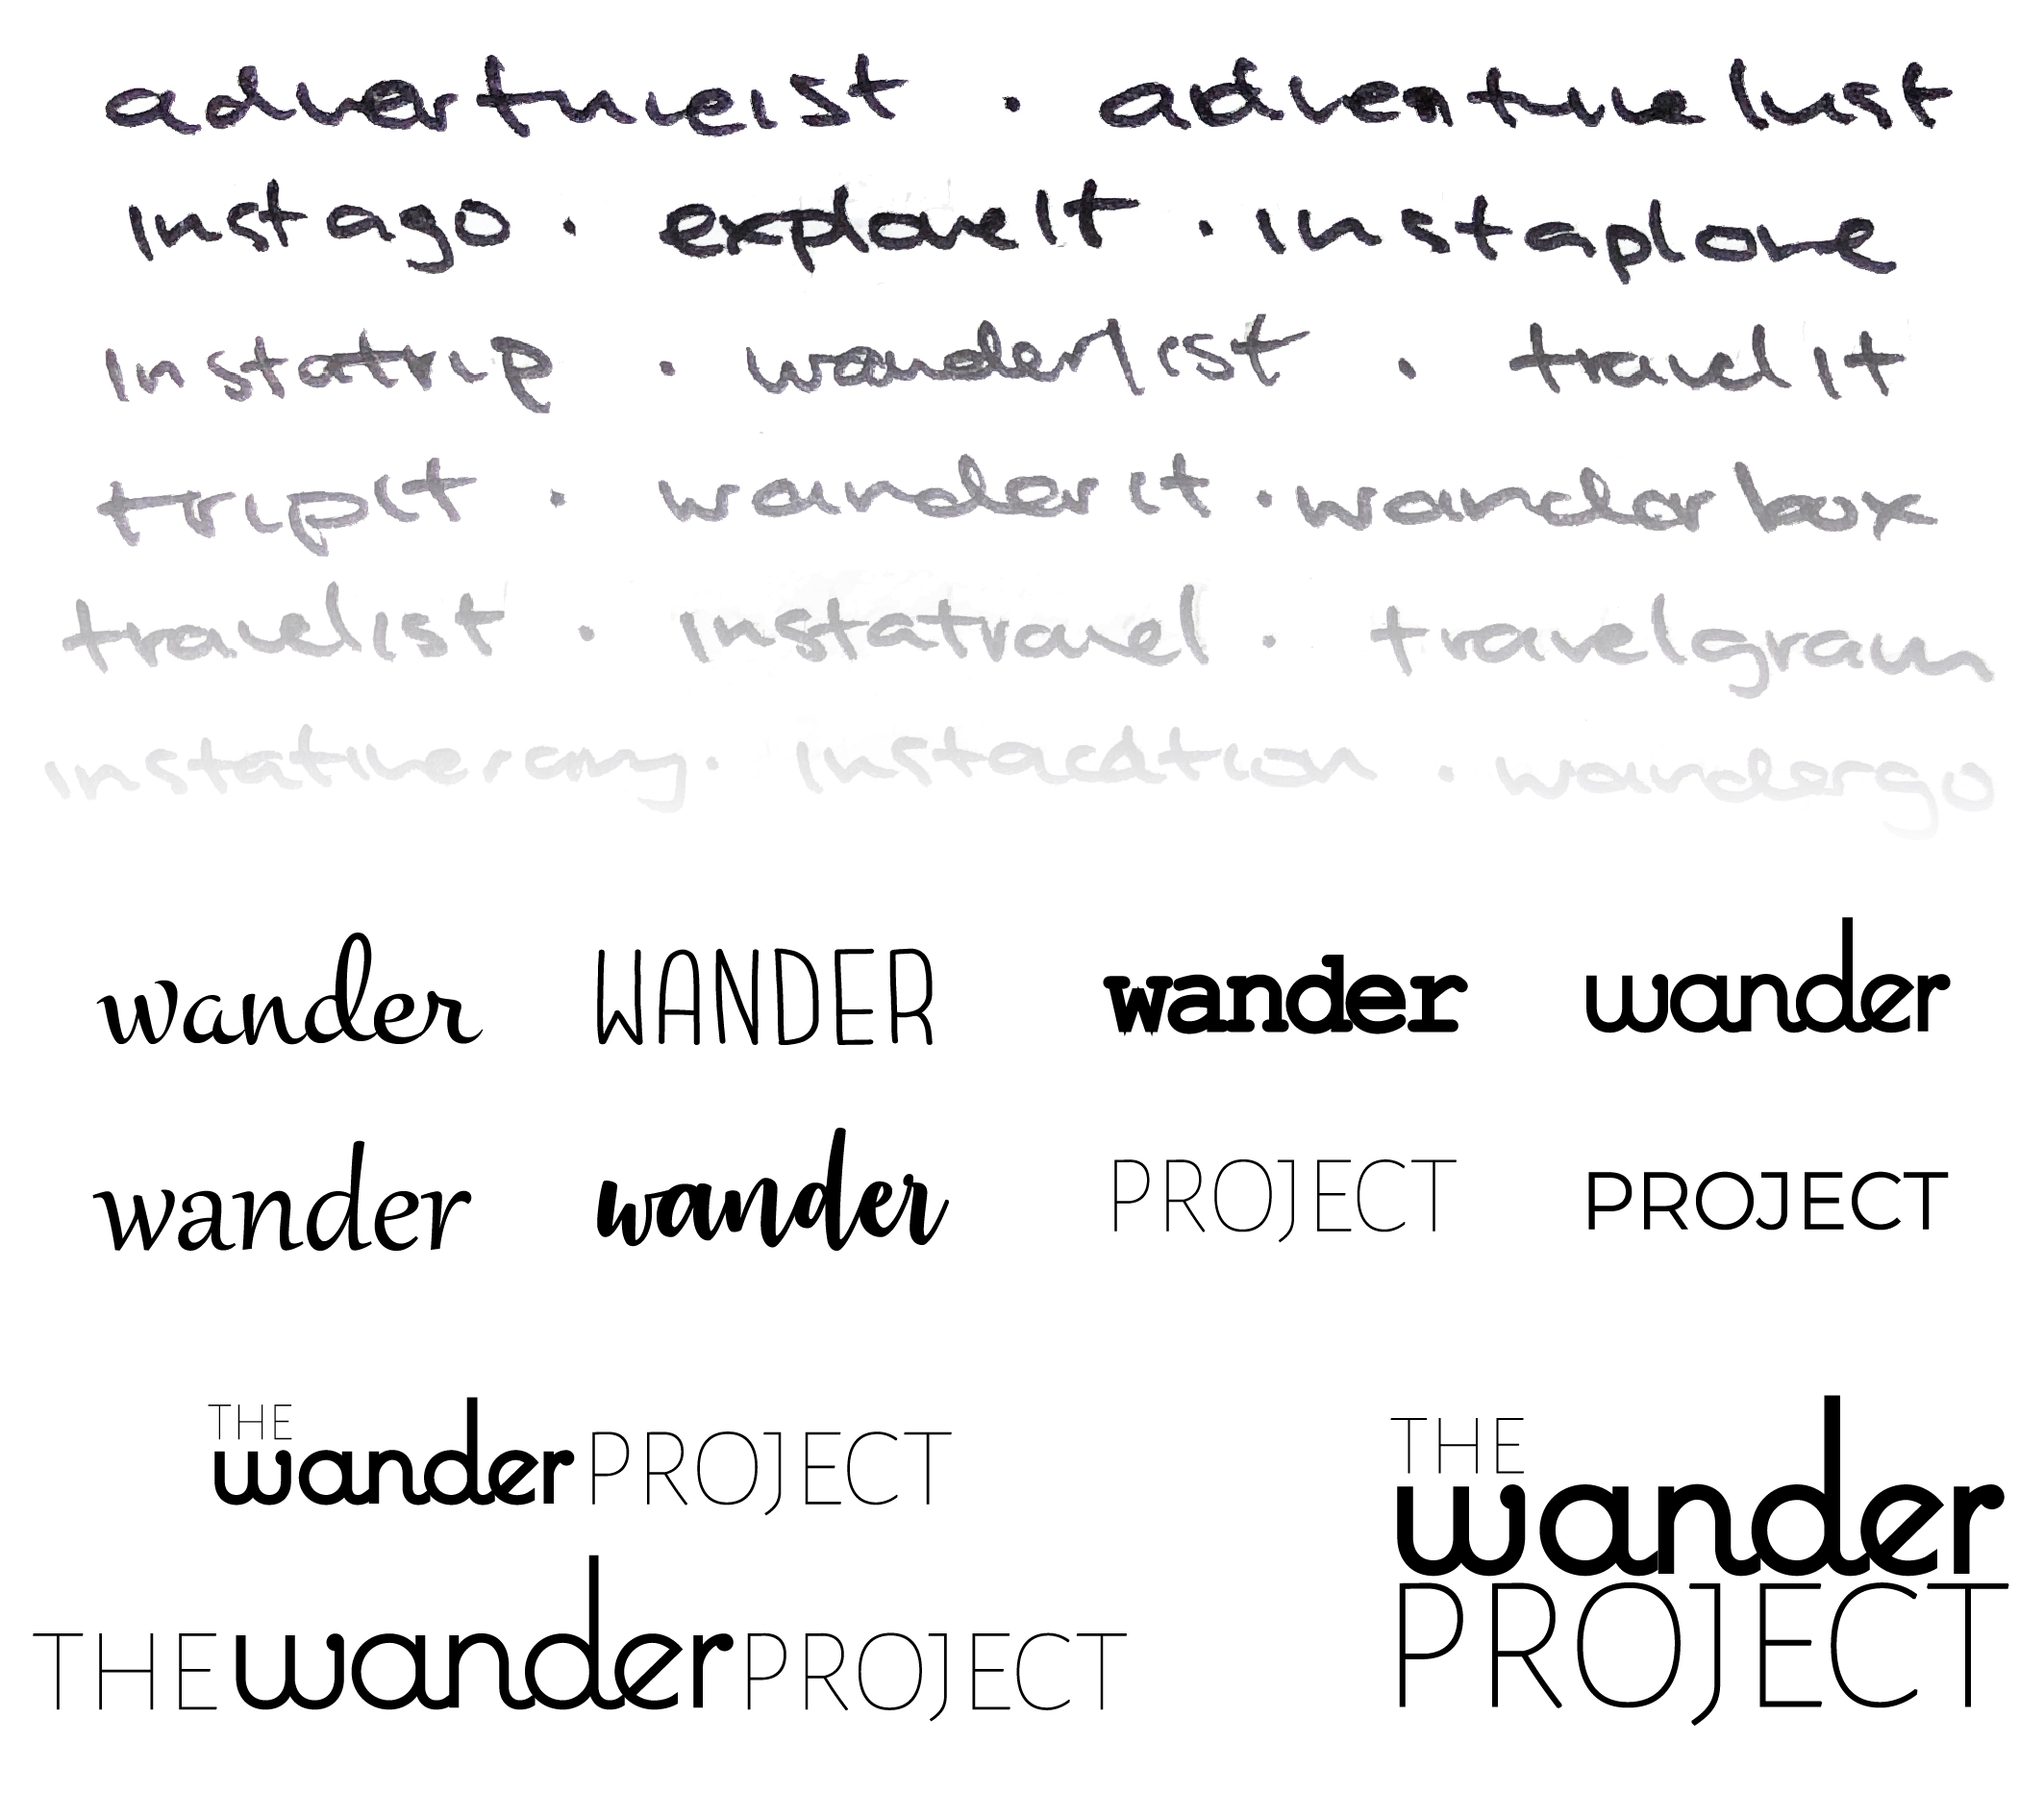 adventureist · adventurelust
instago · exploreit · instaplore
instatrip · wanderlist · travelit
tripit · wanderit · wanderbox
travelist · instatravel · travelgram
instatinerary · instacation · wandergo
wander WANDER wander wander
wander wander PROJECT PROJECT
THE
wander PROJECT
THE wander PROJECT
THE
wander
PROJECT